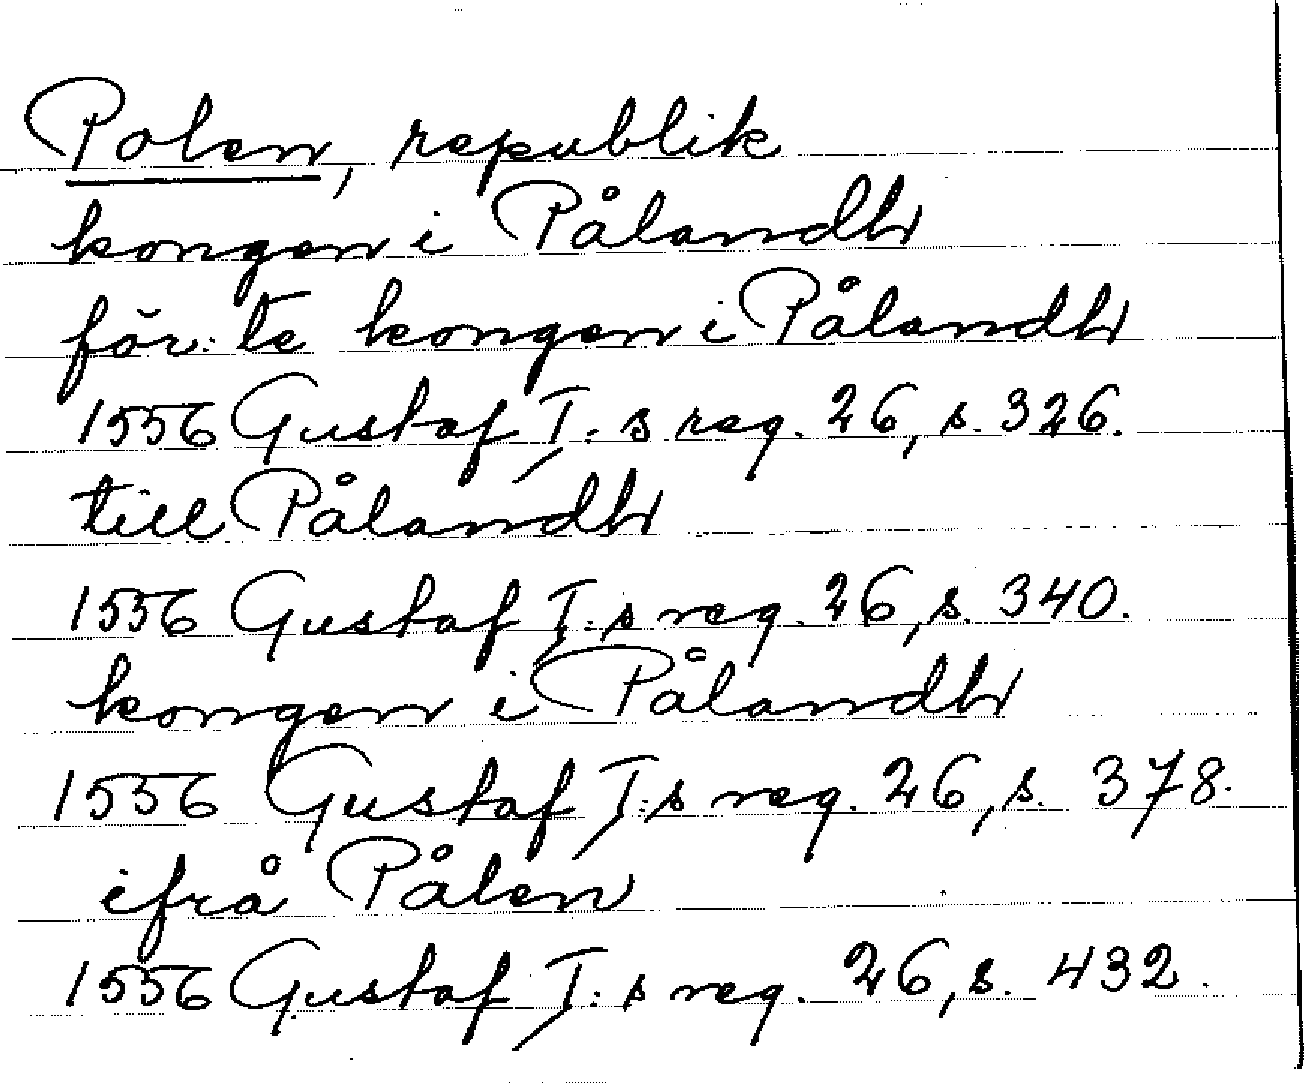 Polen, republik
kongen i Pålandh
för: te kongen i Pålandh
1556 Gustaf I: s reg. 26, s. 326.
till Pålandh
1556 Gustaf I: s reg. 26, s. 340.
kongen i Pålandh
1556 Gustaf I: s reg. 26, s. 378.
ifrå Pålen
1556 Gustaf I: s reg. 26, s. 432.